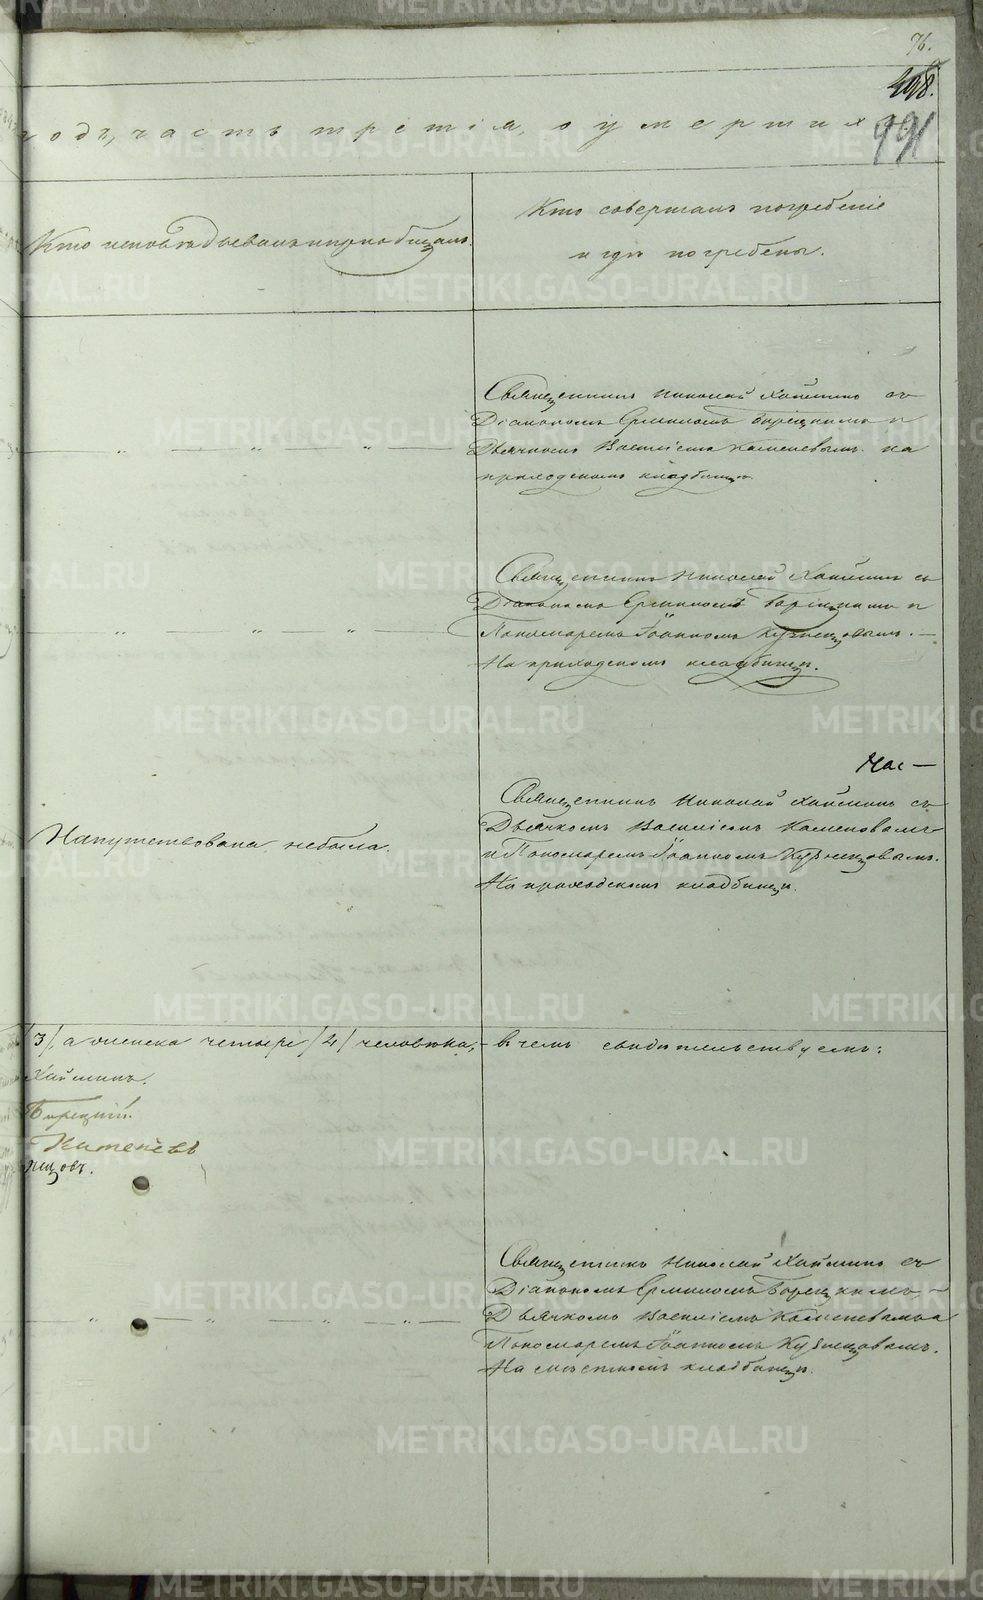 76.
498.
991
годъ, часть третія, о умершихъ.
Кто исповѣдывалъ и приобщалъ.
Кто совершалъ погребеніе
и гдѣ погребены.
Священникъ Николай Хаймин съ
Діакономъ Ермиломъ Борецкимъ и
Дьячкомъ Василіемъ Каменевымъ на
приходскомъ кладбищѣ.
Священникъ Николай Хайминъ съ
Діакономъ Ермиломъ Борецкимъ и
Пономаремъ Іоанномъ Кузнецовымъ. —
На приходскомъ кладбищѣ.
Нас —
Напутствована небыла.
Священникъ Николай Хайминъ съ
Дьячкомъ Василіемъ Каменевымъ
и Пономаремъ Іоанномъ Кузнецовымъ.
На приходскомъ кладбищѣ.
/3/, а женска четыре /4/ человѣка, — въ чемъ свидѣтельствуемъ:
Хайминъ.
Борецкій.
Каменевъ
нецовъ.
Священникъ Николай Хайминъ съ
Діакономъ Ермиломъ Борецкимъ, —
Дьячкомъ Василіемъ Каменевымъ и
Пономаремъ Іоанномъ Кузнецовымъ.
На мѣстномъ кладбищѣ.
METRIKI.GASO-URAL.RU